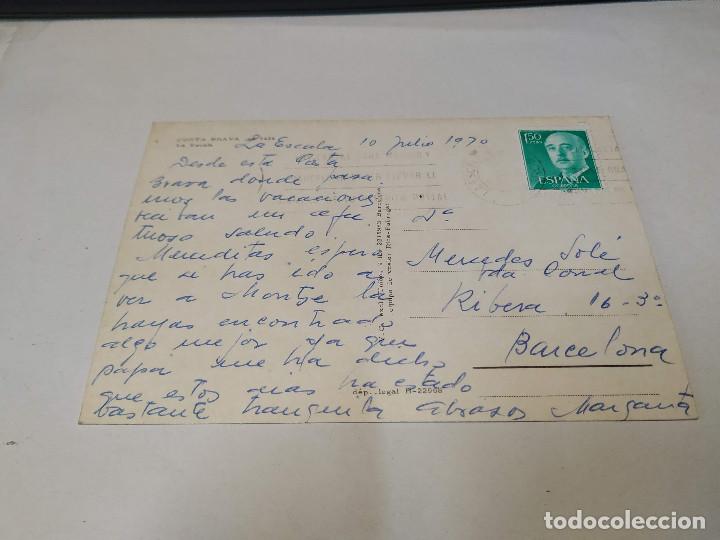 COSTA BRAVA
La Escala 10 Julio 1970
Desde esta Costa
Brava donde pasa
mos las vacaciones
reciban un afec
tuoso saludo
Merceditas espero
que si has ido a
ver a Montse la
hayas encontrado
algo mejor ya que
papa me ha dicho
que estos dias ha estado
bastante tranquila Abrazos Margarita
dep. legal
1'50
PTAS
ESPAÑA
CORREOS
Dª
Mercedes Solé
Vda Conal
Ribera 16-3º
Barcelona
todocoleccion
todocoleccion.net